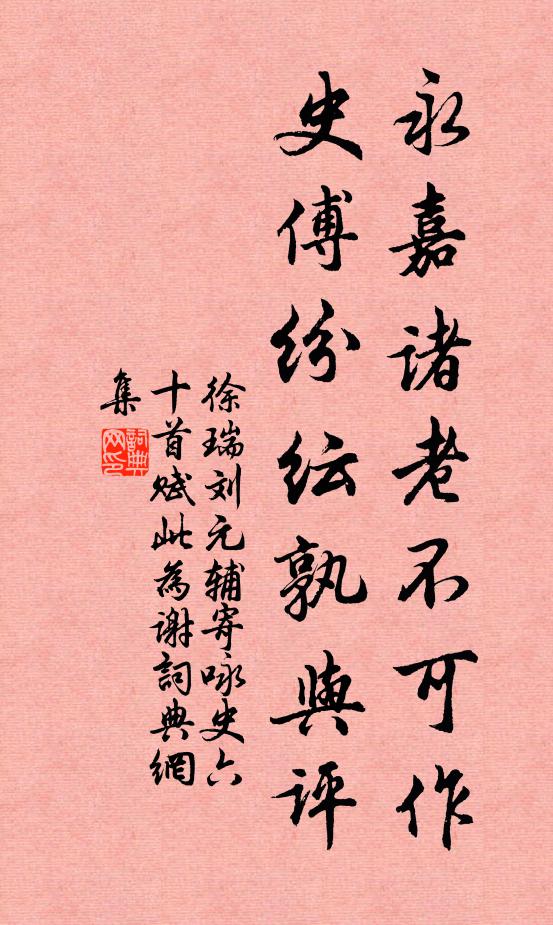 永嘉诸老不可作
史傅纷纭孰與评
徐瑞刘元辅寄咏史六
十首赋此為谢詞典網
集
詞典网印